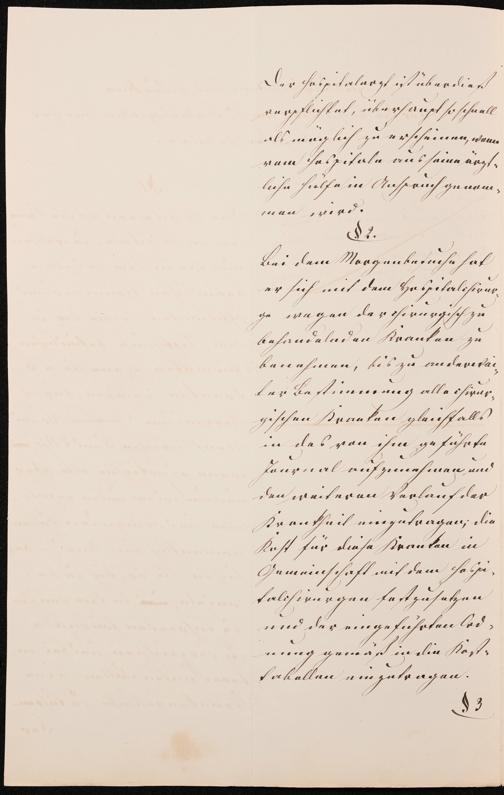 Der Hospitalarzt ist überdies
verpflichtet, überhaupt so schnell
als möglich zu erscheinen, wenn
vom Hospitale aus seine ärzt-
liche Hülfe in Anspruch genom-
men wird.
§ 2.
Bei dem Morgenbesuche hat
er sich mit dem Hospitalchirur-
gen wegen der chirurgisch zu
behandelnden Kranken zu
benehmen, bis zu anderwei-
ter Bestimmung alle chirur-
gischen Kranken gleichfalls
in das von ihm geführte
Journal aufzunehmen und
den weiteren Verlauf der
Krankheit einzutragen; die
Kost für diese Kranken in
Gemeinschaft mit dem Hospi-
talchirurgen festzusetzen
und der eingeführten Ord-
nung gemäß in die Kost-
tabellen einzutragen.
§ 3